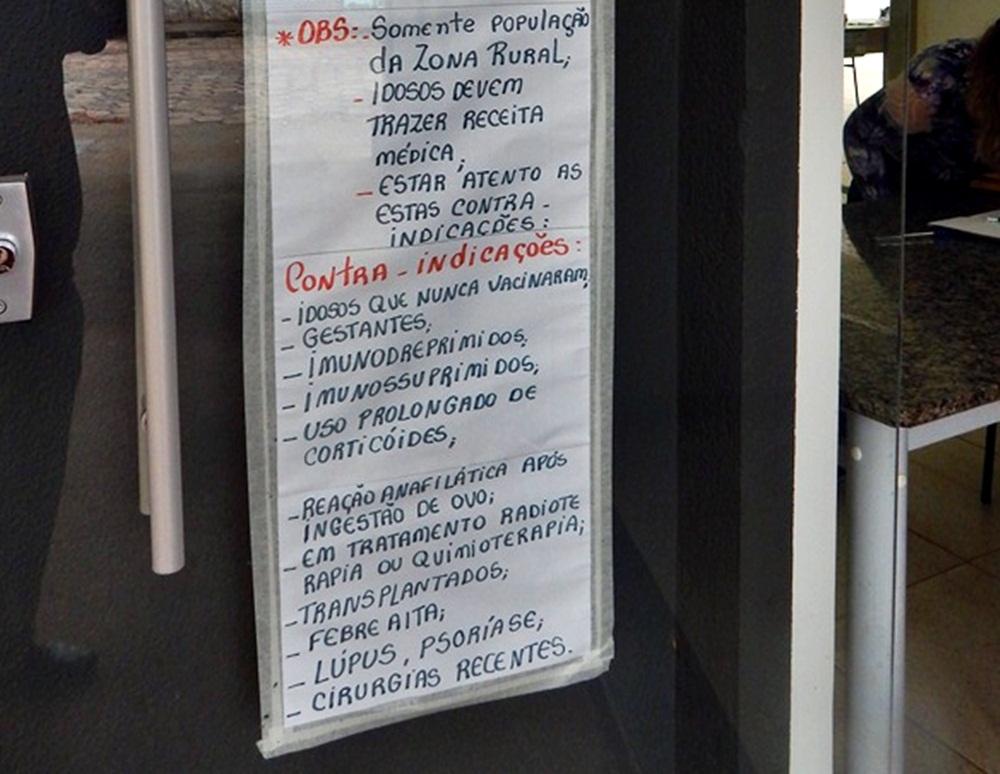 * OBS:.Somente POPULAÇÃO
DA ZONA RURAL;
- IDOSOS DEVEM
TRAZER RECEITA
MÉDICA;
- ESTAR ATENTO AS
ESTAS CONTRA-
INDICAÇÕES:
CONTRA-INDICAÇÕES:
- IDOSOS QUE NUNCA VACINARAM;
- GESTANTES;
- IMUNODREPRIMIDOS;
- IMUNOSSUPRIMIDOS;
- USO PROLONGADO DE
CORTICÓIDES;
- REAÇÃO ANAFILÁTICA APÓS
INGESTÃO DE OVO;
- EM TRATAMENTO RADIOTE
RAPIA OU QUIMIOTERAPIA;
- TRANSPLANTADOS;
- FEBRE AlTA;
- LÚPUS, PSORÍASE;
- CIRURGIAS RECENTES.